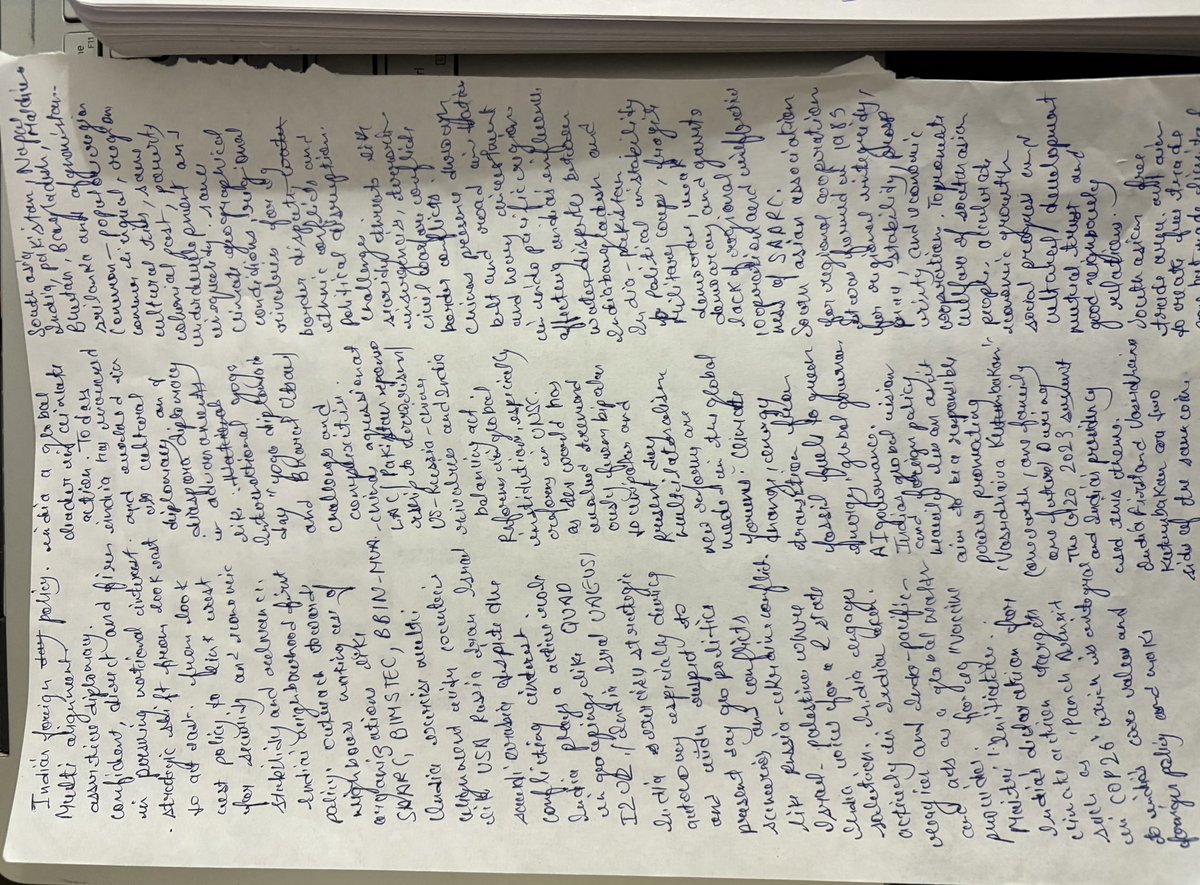 India's foreign policy.
Multi alignment
assertive diplomacy.
confident, direct and firm
in pursuing national interest.
. strategic shift from look east
to act east. from look
west policy to link west
for security and economic
stability and resilience:
India's neighbourhood first
policy: outreach towards
neighbours making use of
organisations like
SAARC, BIMSTEC, BBIN-MVA.
India exercises multi
alignment with countries
like USA Russia Iran Israel
saudi arabia despite the
conflicting interest.
India plays a active role
in groupings like QUAD
I2U2 (India Israel UAE US)
India exercises strategic
autonomy especially during
and with respect to
present day geo politics
scenarios and conflicts
like Russia-ukrain conflict.
Israel-Palestine where
India voices for a 2 state
solution. India engages
actively in Indian ocean
region and indo-pacific-
and acts as a global health
provider for eg "Vaccine
Maitri" initiative.
India's declaration for
climate action targets
such as "Panch Amrit
in COP26" which is integral
to india's core values and
foreign policy and makes
india a global
leader in climate
action. Today's
india has increased
and evolved its
its cultural
diplomacy and
diaspora diplomacy
in alignments
like yoga
international yoga
day "yoga diplomacy"
and Bharat (Ebay)
challenges and
complexities.
china aggression at
LAC/Pakistan spons
rship to terrorism/
US-Russia-china
rivalries and india
balancing act.
Reforms in global
institutions, especially
reform in UNSC.
as the world has
evolved toward
ously from bipolar
to unipolar and
present day
multilateralism
new reforms are
needed in the global
forums- climate
finance, energy
transition from
fossil fuel to green
energy, global governan
AI governance.
Indian global vision
and foreign policy
wants lies on and it
aim to be a responsible
power promoting
'Vasudhaiva Kutumbakam';
(one earth, one family
one future) During
the G20 2023 summit
and India's presidency
used this theme.
India first and Vasudhaiva
Kutumbakam are two
side of the same coin.
South asia Pakistan Nepal
India, Bangladesh, Maldives
Bhutan
srilanka and afghanistan.
Common - part of region
common lingual, region
cultural ties, same
colonial past, poverty
underdevelopment and
inequality same
climate geographical
conditions land and
rivalries for eg
border disputes and
ethnic conflicts and
political disruption
challenges like
security threats like
insurgencies, terrorism
civil wars and conflicts
border conflicts indian
chinese presence through
belt and road initiative
and heavy investment
in indo pacific region
affecting india's influence
water disputes between
India Bangladesh and
India-pakistan
→ Political instability
Military coups, fragile
democracy, weak
democracy and gaunts
lack regional
cooperation and ineffective
ness of SAARC.
South asian association
for regional cooperation
it was found in 1985
for regional integrity
peace, stability, prosp
erity and economic
cooperation. To promote
welfare of south asian
people. accelerate
economic growth
social progress and
cultural development
mutual trust and
good neighbourly
relations.
South asian free
trade area
to create free trade